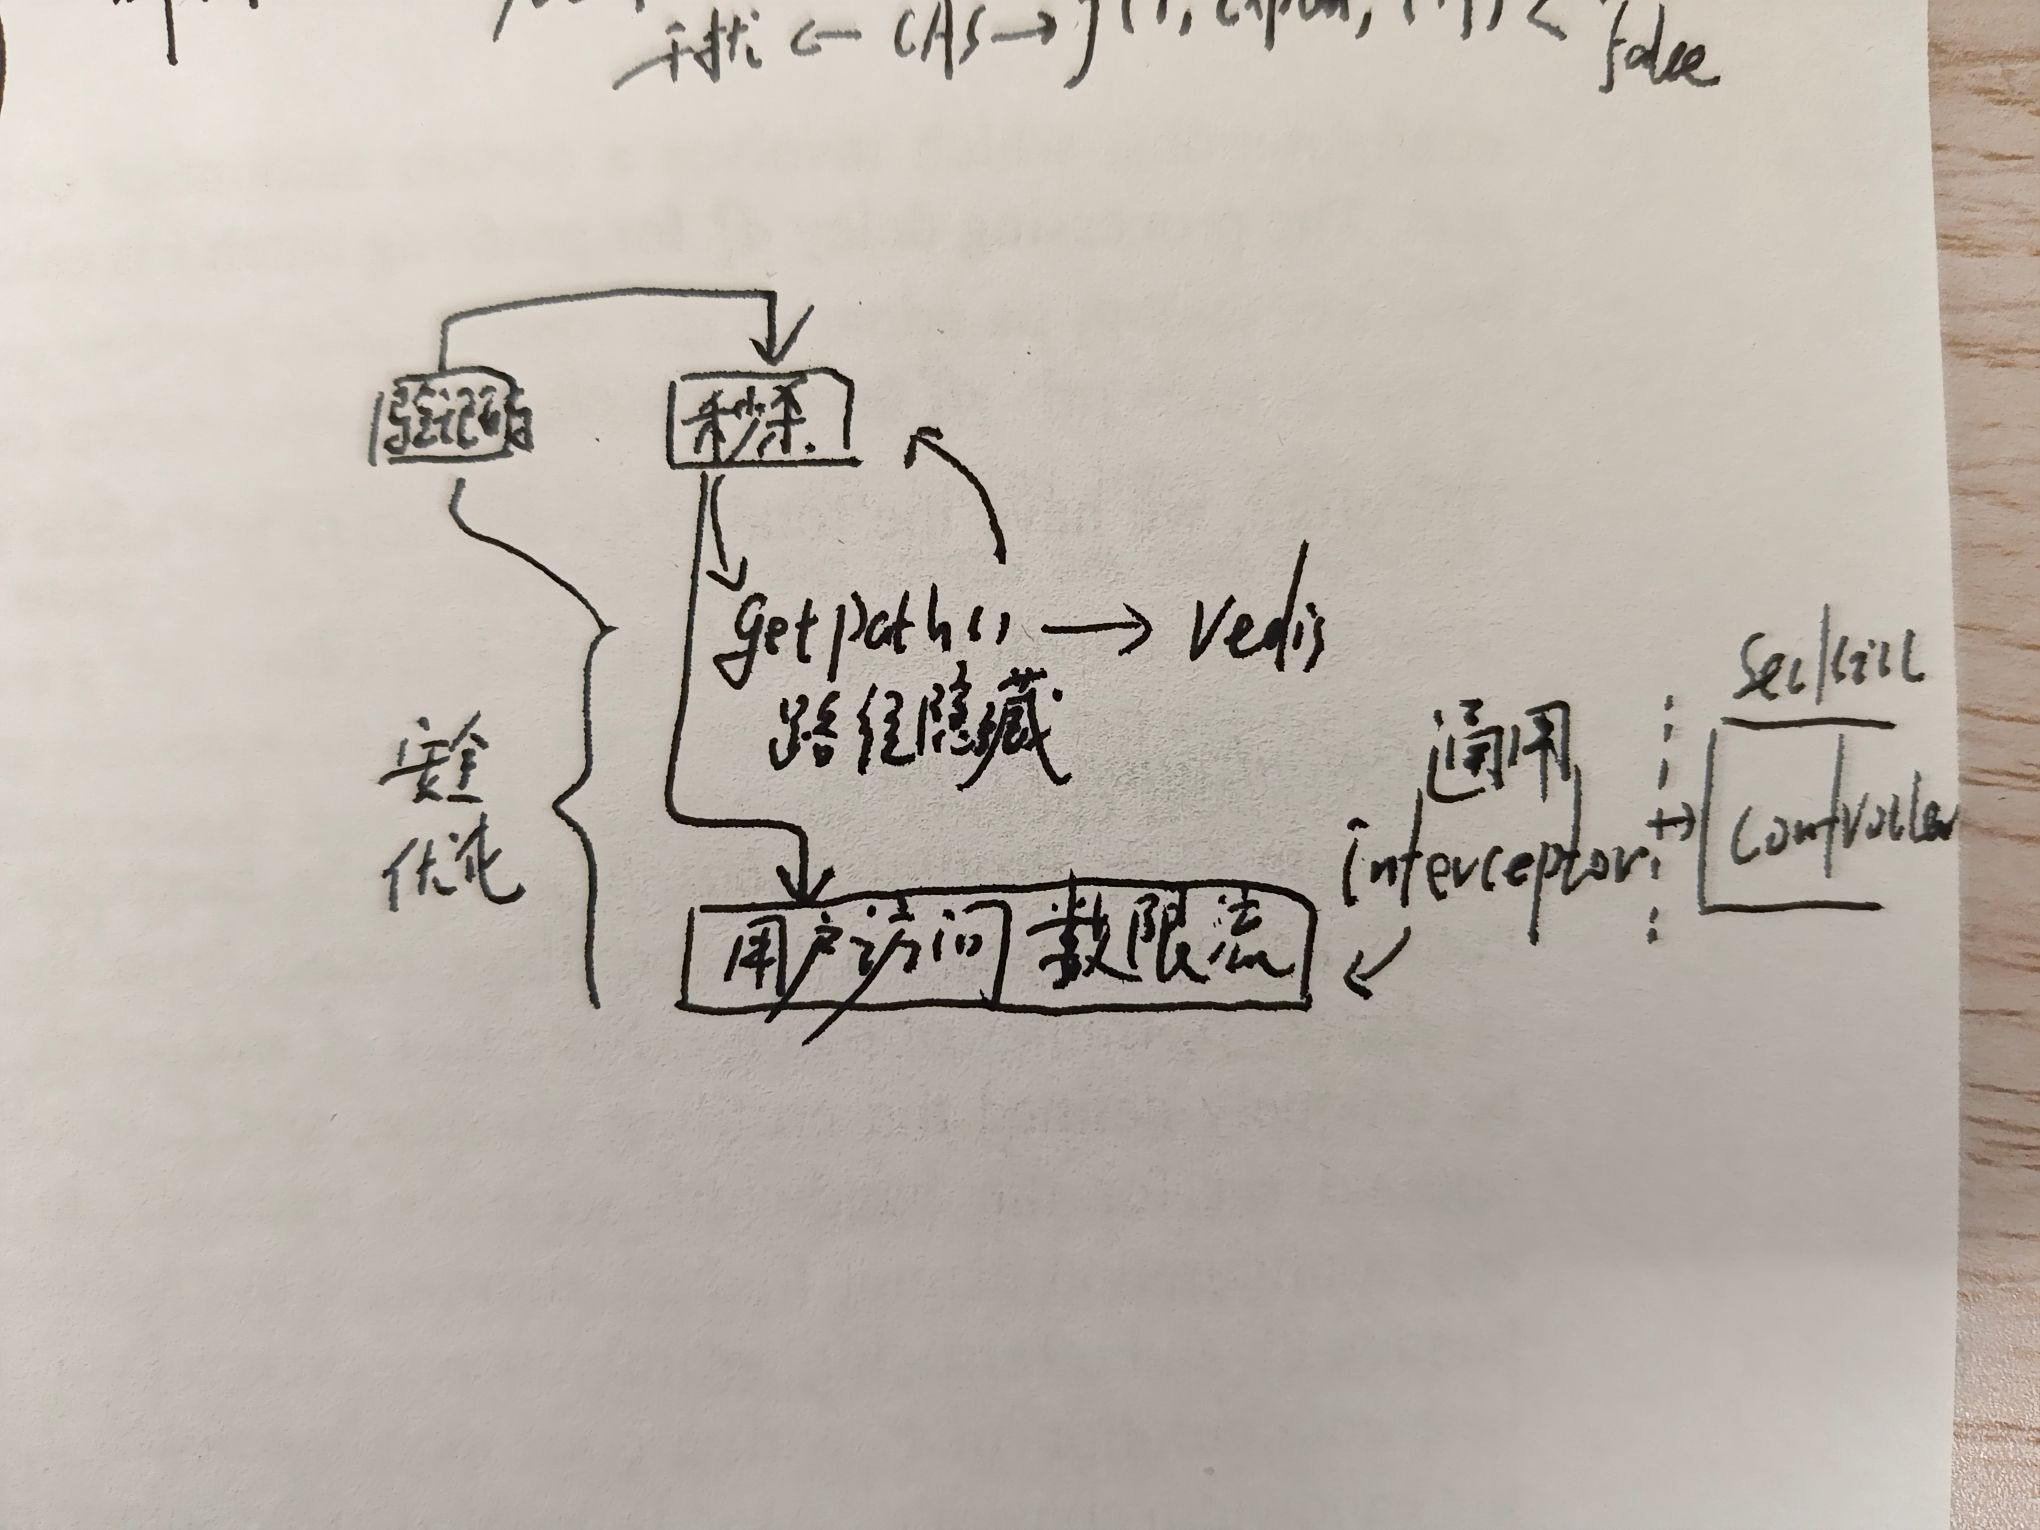 干扰 ← CAS →
false
验证码 秒杀
getpath() → redis
路径隐藏
安全
优化
通用
interceptor →
seckill
controller
用户访问 数限流